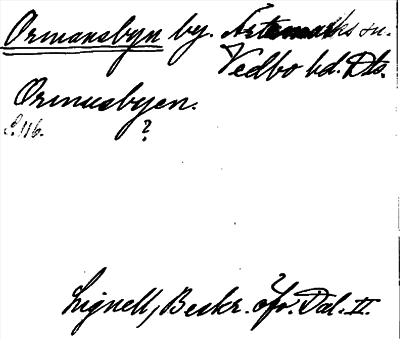 Ormansbyn by. Artemarks sn.
Vedbo hd. Dls.
Ormusbyen.
S. 116. ?
Lignell, Beskr. öfv. Dal. II.